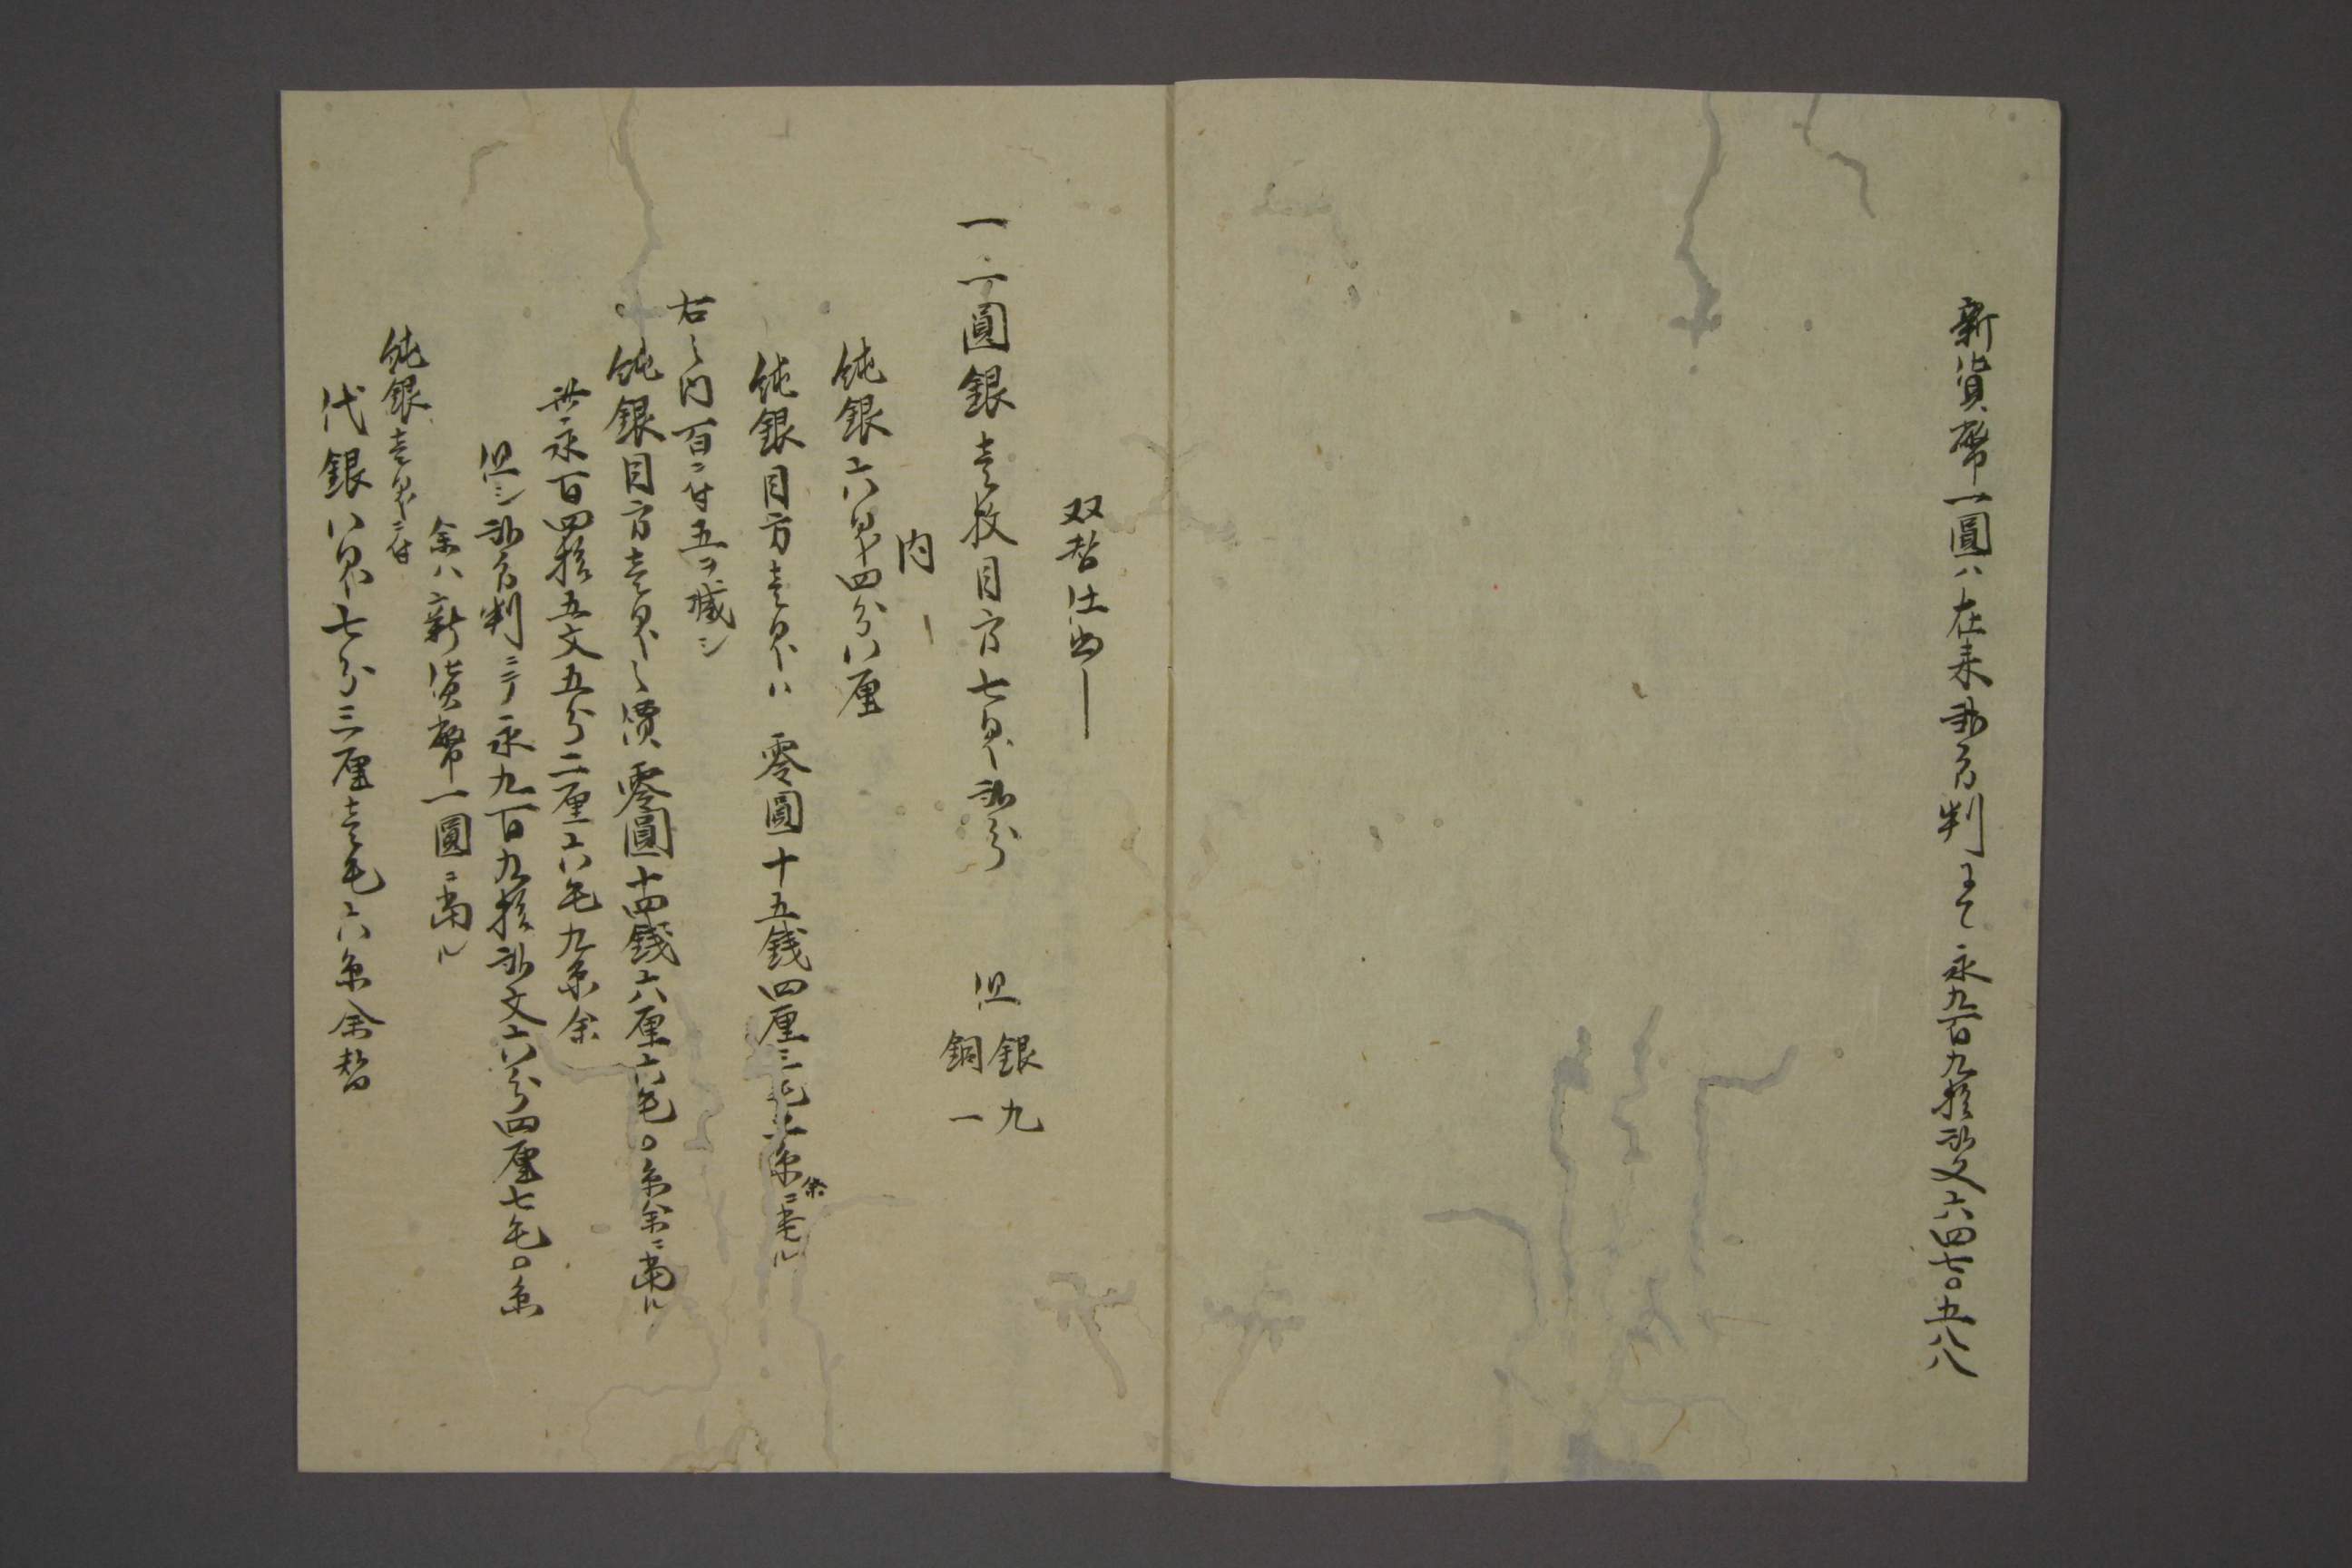 新貨幣一圓ハ在来弐分判ニて永九百九拾弐文六四七〇五八八
双替仕
一 一圓銀壱枚目方七匁弐分 但 銀九 銅一
内
純銀六匁四分八厘
純銀目方壱匁ハ零圓十五銭四厘三毛二糸余ニ當ル
右之内百ニ付五ヲ減シ
純銀目方壱匁之價零圓十四銭六厘六毛〇糸余ニ當ル
此永百四拾五文五分二厘六毛九糸余
但シ弐分判ニテ永九百九拾弐文六分四厘七毛〇糸
余ハ新貨幣一圓ニ當ル
純銀壱匁ニ付
代銀八匁七分三厘壱毛六糸余替